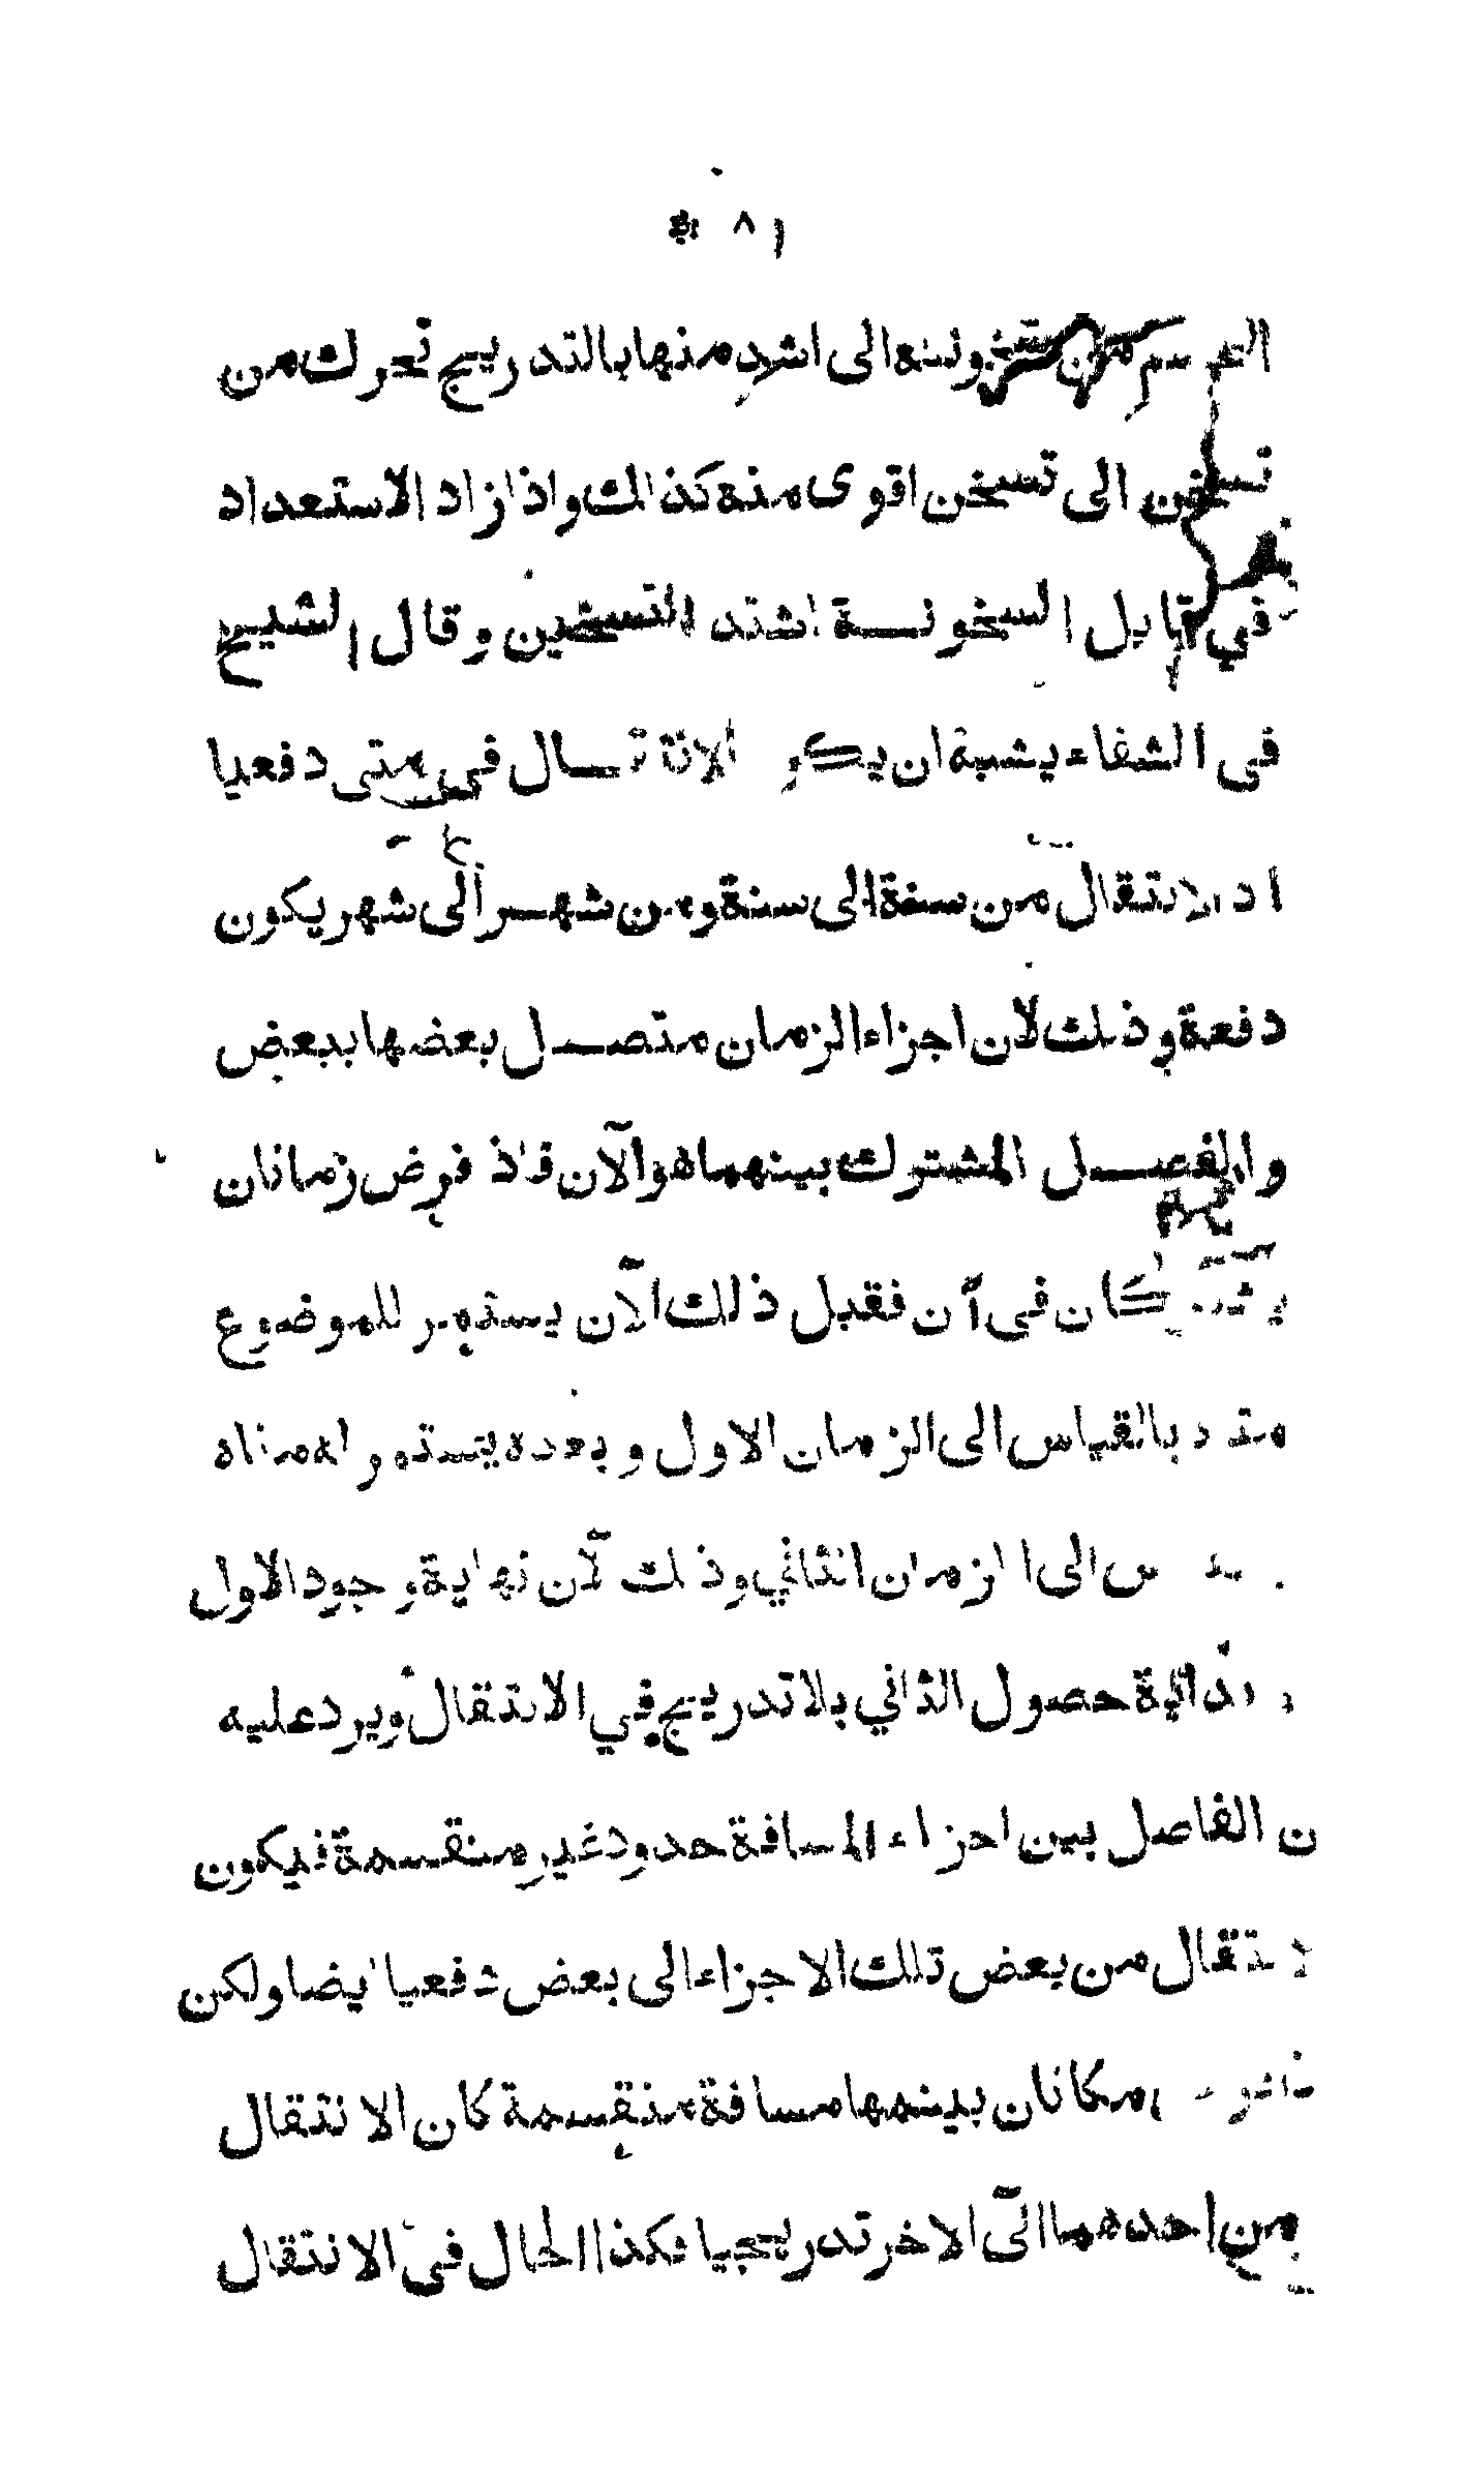 ٨١
من سخونة الى اشد منها بالتدريج تحرك من
تسخن الى تسخن اقوى منه كذالك واذا زاد الاستعداد
في قابل السخونة اشتد التسخين وقال الشيخ
فى الشفاء يشبة ان الانتقال فى متى دفعيا
اد الانتقال من سنة الى سنة ومن شهر الى شهر يكون
دفعة وذلك لأن اجزاء الزمان متصل بعضها ببعض
والفصل المشترك بينهما هو الآن فاذ فرض زمانان
كان فى آن فقبل ذلك الآن يستمر للموضوع
بالقياس الى الزمان الاول وبعده يستمر
الى الزمان الثاني وذلك لأن نهاية وجود الاول
حصول الثاني بلا تدريج في الانتقال ويرد عليه
ن الفاصل بين اجزاء المسافة حدود غير منقسمة فيكون
من بعض تلك الاجزاء الى بعض دفعيا ايضا ولكن
مكانان بينهما مسافة منقسمة كان الانتقال
من احدهما الى الاخر تدريجيا فكذا الحال فى الانتقال